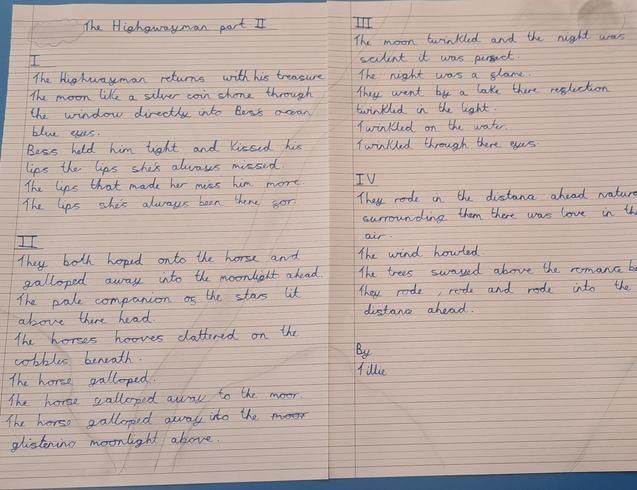 The Highgwayman part II
I
The Highwayman returns with his treasure
The moon like a silver coin shone through
the window directly into Bess's ocean
blue eyes.
Bess held him tight and kissed his
lips the lips she's always missed.
The lips that made her miss him more.
The lips she's always been there for.
II
They both hoped onto the horse and
galloped away into the moonlight ahead.
The pale companion of the stars lit
above there head.
The horses hooves clattered on the
cobbles beneath.
The horse galloped.
The horse galloped away to the moor.
The horse galloped away into the moor
glistening moonlight above.
III
The moon twinkled and the night was
scilent it was perfect.
The night was a glame.
They went by a lake there reflection
twinkled in the light.
Twinkled on the water.
Twinkled through there eyes.
IV
They rode in the distana ahead nature
surrounding them there was love in the
air.
The wind howled.
The trees swayed above the romance be
They rode, rode and rode into the
distana ahead.
By
Tillie